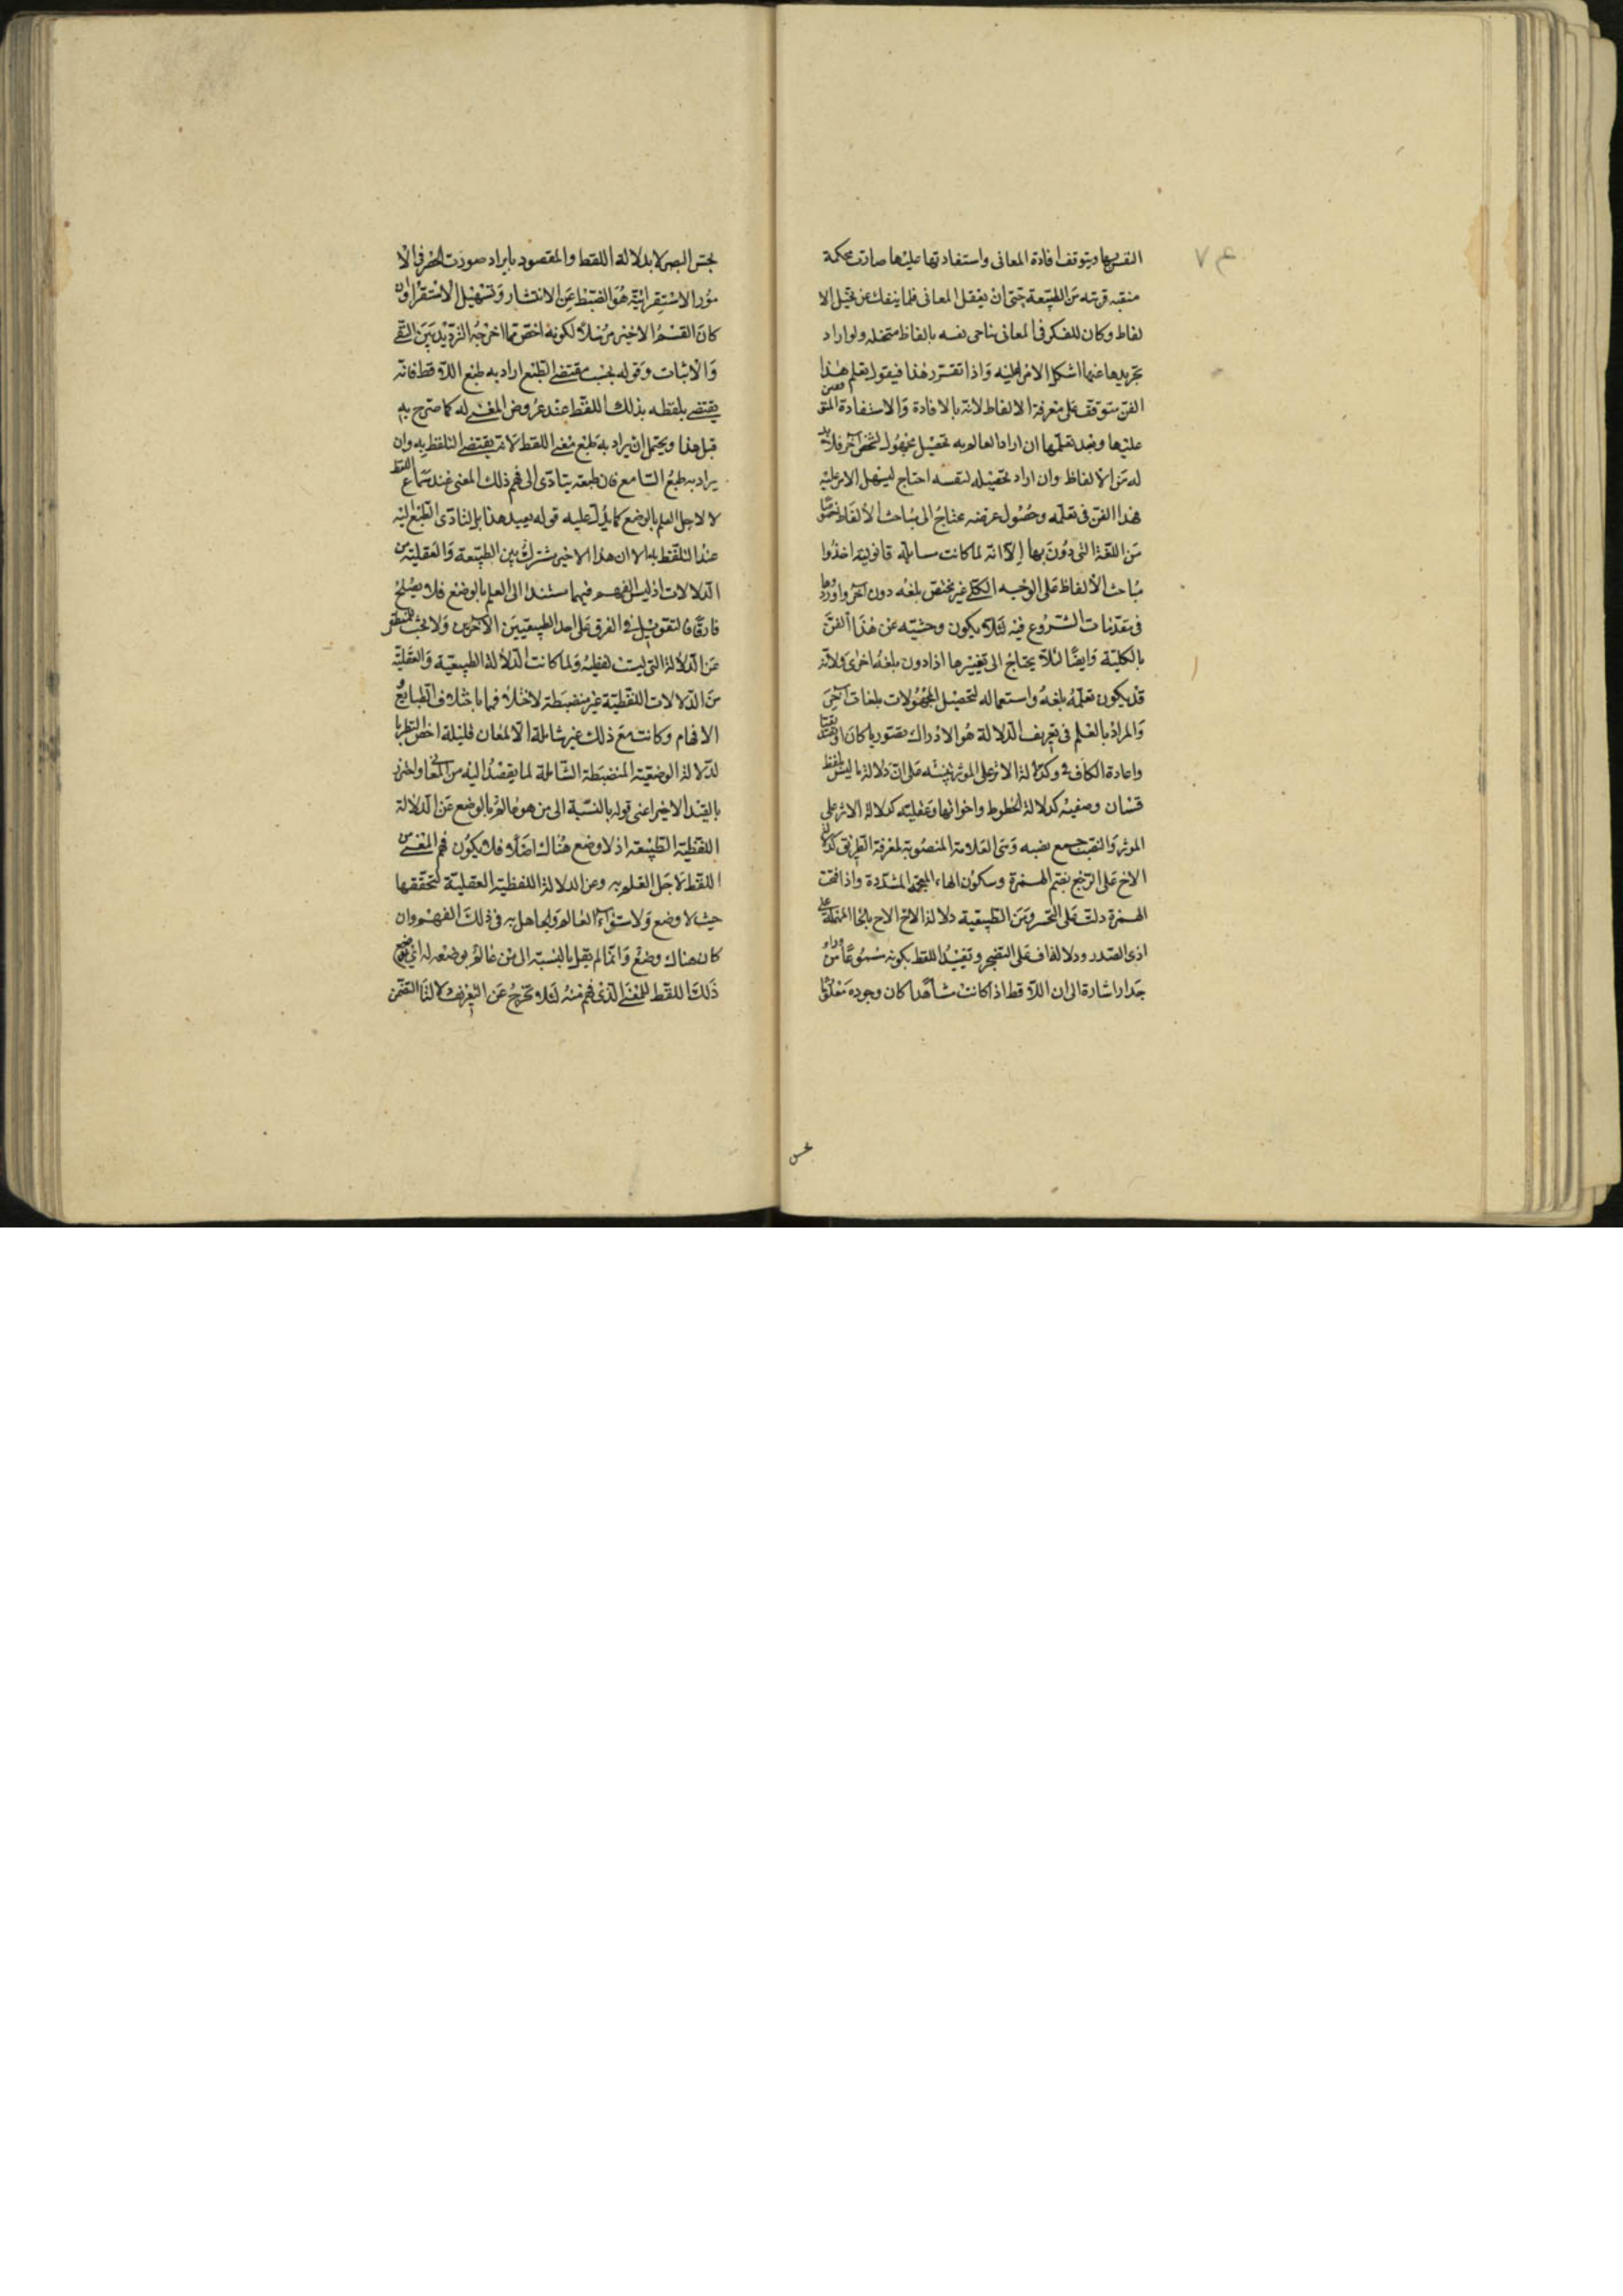 النفس بها ويتوقف افادة المعانى واستفادتها عليها صارت محكمة
منقبه قريته من الطبيعة حتى ان تعقل المعانى فلما ينفك عن تخيل الا
لفاظ وكان للفكر فى المعانى يناجى نفسه بالفاظ متخيله ولو اراد
تجريدها عنها اشكل الامر عليه واذا تقرر هذا فيقول تعلم هذا
الفن متوقف على معرفة الالفاظ لانه بالافادة والاستفادة المتوقفين
عليها وبعد تعلمها ان اراد العالم به تحصيل مجهول لشخص آخر فلا بد
له من الالفاظ وان اراد تحصيله لنفسه احتاج ليسهل الامر عليه
فهذا الفن فى تعلمه وحصول غرضه محتاج الى مباحث الالفاظ خصوصا
من اللغة التى دون بها الا انه لما كانت مسايله قانونية اخذوا
مباحث الالفاظ على الوجه الكلى غير مختص بلغه دون اخرى واوردوها
فى مقدمات الشروع فيه لئلا يكون وحشيه عن هذا الفن
بالكلية وايضا لئلا يحتاج الى تغييرها اذا دون بلغة اخرى ولانه
قد يكون تعلمه بلغة واستعماله لتحصيل المجهولات بلغات اخرى
والمراد بالعلم فى تعريف الدلالة هو الادراك تصوريا كان او تصديقيا
واعادة الكاف فى وكدلالة الاثر على الموثر تنبيه على ان دلالة ما ليس بلفظ
قسمان وضعيه كدلالة الخطوط واخواتها وعقليته كدلالة الاثر على
الموثر والنصب جمع نصبه وهى العلامة المنصوبة لمعرفة الطريق كدلالة
الاخ على الوجع بفتح الهمزة وسكون الهاء المعجمة المشددة واذا فتحت
الهمزة دلت على التحسر وهى من الطبيعية دلالة الاح الاح بالحا المهملة على
اذى الصدر ودلالة اف على التضجر وتقييد اللفظ بكونه مسموعا من وراء
جدار اشارة الى ان اللا فظ اذا كانت شاهدا كان وجوده معلوما
بحس
بحس البصر لا بدلالة اللفظ والمقصود بايراد صورت الحصر فى الا
مور الاستقرائية هو الضبط عن الانتشار وتسهيل الاستقراء وان
كان القسم الاخير مرسلا لكونه اخص مما اخرجه الترديد بين النفى
والاثبات وقوله بحسب مقتضى الطبع اراد به طبع اللا فظ فانه
يقتضى بلفظه بذلك اللفظ عند عروض المعنى له كما صرح به
قبل هذا ويحتمل ان يراد به طبع معنى اللفظ لانه يقتضى التلفظ به وان
يراد به طبع السامع فان طبعه يتادى الى فهم ذلك المعنى عند سماع اللفظ
لا لاجل العلم بالوضع كما يدل عليه قوله بعيد هذا بل لتادى الطبع اليه
عند التلفظ به الا ان هذا الاخير مشترك بين الطبيعة والعقلية من
الدلالات اذ ليس الفهم فيهما مستندا الى العلم بالوضع فلا يصلح
فارقا فالتعويل فى الفرق على احد الطبيعيين الاخرين ولا بحث للمنطقى
عن الدلالة التى ليست لفظية ولما كانت الدلالة الطبيعية والعقلية
من الدلالات اللفظية غير منضبطة لاختلافهما باختلاف الطبايع و
الافهام وكانت مع ذلك غير شاملة الا لمعان قليلة اختص النظر با
لدلالة الوضعية المنضبطة الشاملة لما يقصد اليه من المعانى واحترز
بالقيد الاخير اعنى قوله بالنسبة الى من هو عالم بالوضع عن الدلالة
اللفظية الطبيعة اذ لا وضع هناك اصلا فلا يكون فهم المعنى من
اللفظ لاجل العلم به وعن الدلالة اللفظية العقلية لتحققها
حيث لا وضع ولاستواء العالم والجاهل به فى ذلك الفهم وان
كان هناك وضع وانما لم يقل بالنسبة الى من عالم بوضعه له اى بوضع
ذلك اللفظ للمعنى الذى فهم منه لئلا تخرج عن التعريف دلالتا التضمن